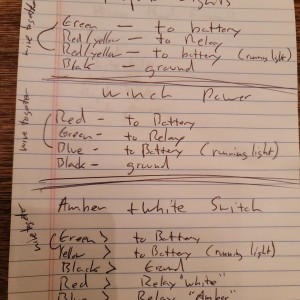 Lights
Green - to battery
Red/yellow - to Relay
Red/yellow - to battery (running light)
Black - ground
wire together
Winch Power
Red - to Battery
Green - to Relay
Blue - to Battery (running light)
Black - ground
wire together
Amber + White Switch
Green > to Battery
Yellow > to Battery (running light)
Black > Ground
Red > Relay "White"
Blue > Relay "Amber"